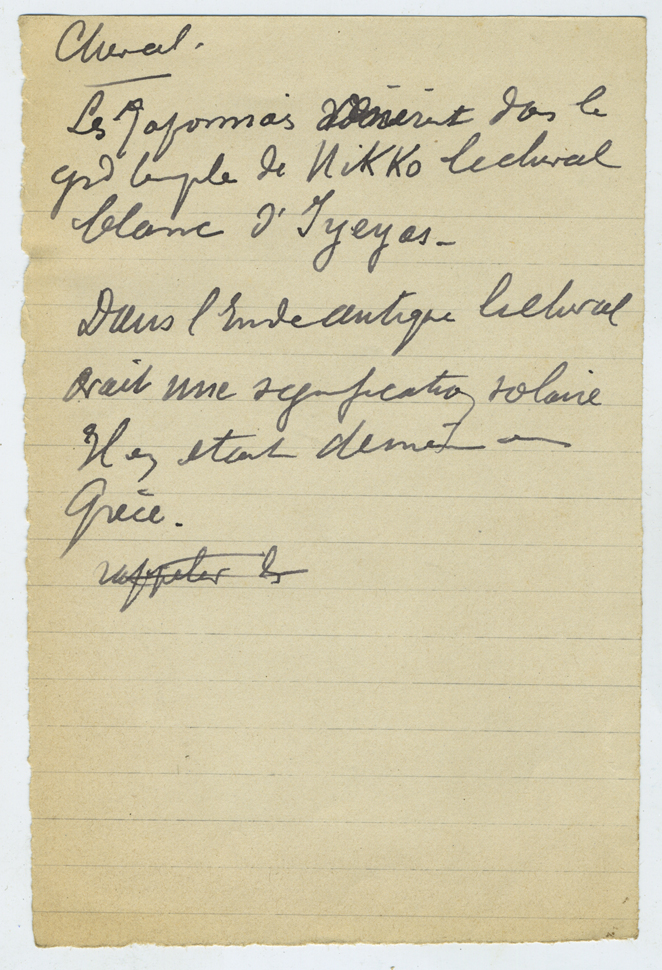 Cheval.
Les Japonnais vénèrent dans le
grd temple de NiKKo le cheval
blanc d'Iyeyas_
Dans l'Inde antique le cheval
avait une signification solaire
Il en etait de même en
Grèce.
rappeler les